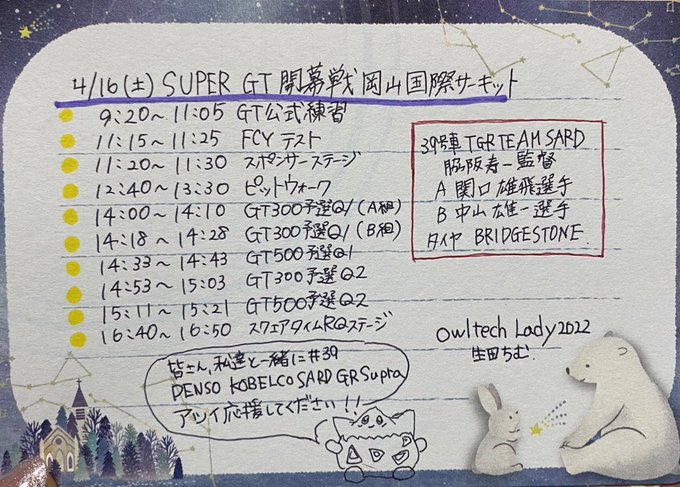 4/16(土) SUPER GT 開幕戦 岡山国際サーキット
9:20~11:05 GT公式練習
11:15~11:25 FCY テスト
11:20~11:30 スポンサーステージ
12:40~13:30 ピットウォーク
14:00~14:10 GT300予選Q1(A組)
14:18~14:28 GT300予選Q1(B組)
14:33~14:43 GT500予選Q1
14:53~15:03 GT300予選Q2
15:11~15:21 GT500予選Q2
16:40~16:50 スクエアタイムRQステージ
39号車 TGR TEAM SARD
脇阪寿一監督
A 関口雄飛選手
B 中山雄一選手
タイヤ BRIDGESTONE
Owltech Lady2022
生田ちむ
皆さん、私達と一緒に#39
DENSO KOBELCO SARD GR Supra
アツイ応援してください!!